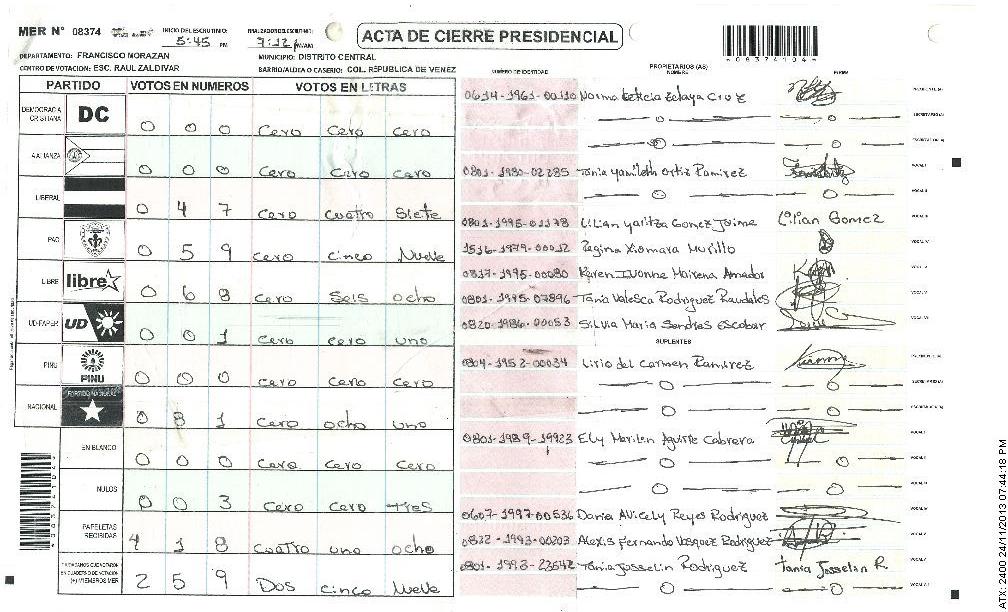 MER N° 08374
INICIO DEL ESCRUTINIO: 5:45 PM
FINALIZADO EL ESCRUTINIO: 9:12 PM/AM
ACTA DE CIERRE PRESIDENCIAL
DEPARTAMENTO: FRANCISCO MORAZAN
MUNICIPIO: DISTRITO CENTRAL
CENTRO DE VOTACION: ESC. RAUL ZALDIVAR
BARRIO/ALDEA O CASERIO: COL. REPUBLICA DE VENEZ
PARTIDO VOTOS EN NUMEROS VOTOS EN LETRAS
DEMOCRACIA CRISTIANA DC 0 0 0 Cero Cero Cero
ALIANZA 0 0 0 Cero Cero Cero
LIBERAL 0 4 7 Cero Cuatro Siete
PAC 0 5 9 Cero cinco Nueve
LIBRE libre 0 6 8 Cero Seis ocho
UD-FAPER UD 0 0 1 Cero cero uno
PINU PINU 0 0 0 Cero Cero Cero
NACIONAL PARTIDO NACIONAL 0 8 1 Cero ocho uno
EN BLANCO 0 0 0 Cero Cero Cero
NULOS 0 0 3 Cero Cero Tres
PAPELETAS RECIBIDAS 4 1 8 Cuatro uno ocho
(+) MIEMBROS MER 2 5 9 Dos cinco Nueve
NUMERO DE IDENTIDAD
PROPIETARIOS (AS)
NOMBRE
FIRMA
0614-1961-00110 Norma Leticia Zelaya Cruz
0801-1980-02285 Tania Yamileth Ortiz Ramirez
0801-1995-01178 Lilian Yaritza Gomez Jaime Lilian Gomez
1516-1979-00012 Regina Xiomara Murillo
0817-1995-00080 Karen Ivonne Mairena Amador
0801-1995-07896 Tania Valesca Rodriguez Raudales
0820-1986-00053 Silvia Maria Sandres Escobar
SUPLENTES
0804-1952-00034 Lirio del Carmen Ramirez
0801-1989-19923 Ely Marilen Aguirre Cabrera
0607-1997-00536 Dania Alicely Reyes Rodriguez
0822-1993-00203 Alexis Fernando Vasquez Rodriguez
0801-1993-23542 Tania Josselin Rodriguez Tania Josselin R.
ATX-2400 24/11/2013 07:44:18 PM